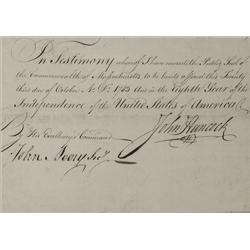 In Testimony whereof I have caused the Public Seal of
the Commonwealth of Massachusetts to be hereto affixed this Twenty
third day of October A: D: 1783 And in the Eighth Year of the
Independence of the United States of America.
By His Excellency's Command
John Hancock
John Avery Secy